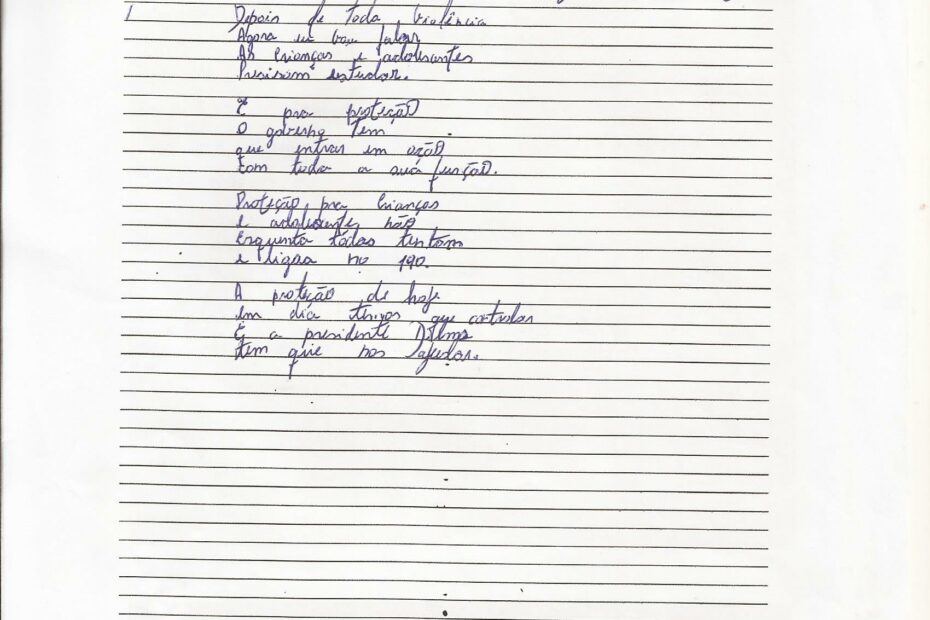 1 Depois de toda violência
Agora eu vou falar
As crianças e adolesantes
Precisam estudar.
E pra proteção
O governo Tem
que entrar em ação
com toda a sua função.
Proteção pra crianças
e adolescente não
Esquenta todas tentam
e ligra no 190.
A proteção de hoje
em dia temos que
E a presidente Dilma
tem que nos ajudar.